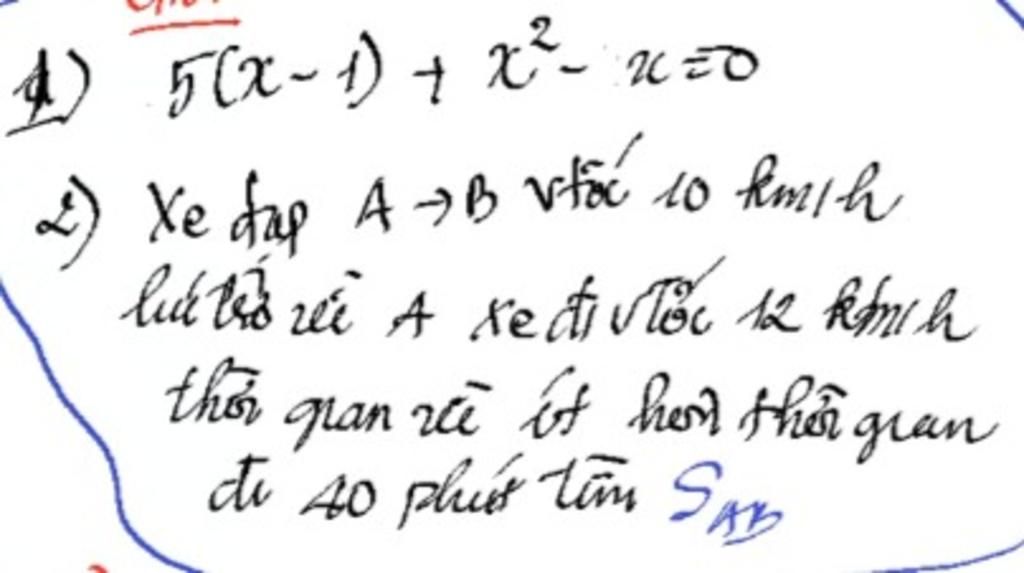 1) 5(x-1) + x² - x = 0
2) Xe đạp A → B vtốc 10 km/h
lúc trở về A xe đi vtốc 12 km/h
thời gian về ít hơn thời gian
đi 40 phút tìm S_AB